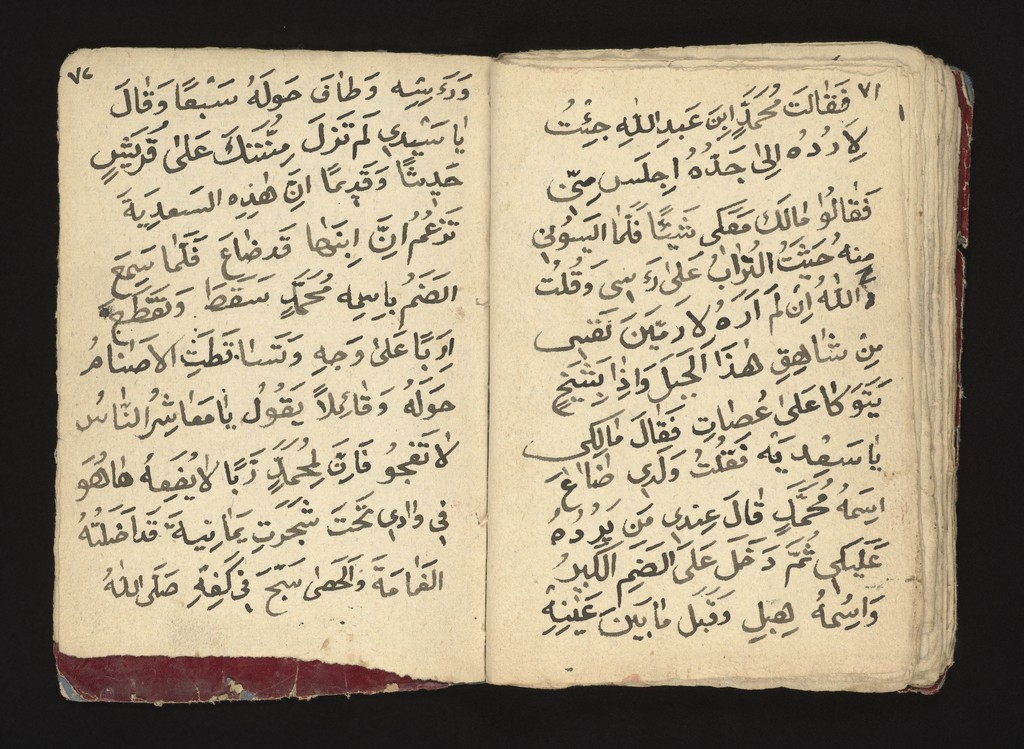 ٧١
فَقَالَتَ مُحَمَّدٍ ابِنَ عَبدِ اللهِ جِئْتُ
لاِرُدُه اِلىٰ جَدّهُ اِجلَس مِنّى
فَقَالُوا مَالَكَ مَعَكى شَيئًا فَلَمَا اليَسوُنى
مِنهُ حَثَيتُ التُرابُ عَلىٰ رَاسى وَقُلتُ
وَاللهُ اِنْ لَم اَرَهُ لارمَيَنَ نَفسى
مِنْ شَاهِقِ هٰذَا الَجَبَل وَاِذَا بِشَيخٍ
يَتَوَكا عَلىٰ عُصَاتِ فَقَالَ مَالَكِى
يَا سَعديَه فَقُلتُ وَلَدى ضَاعَ
اسِمَهُ مُحَمَّدٍ قَالَ عِندى مَن يَرُدُهُ
عَلَيكى ثُمَّ دَخَلَ عَلىَ الصَنِم الكَبيرُ
وَاسِمُهُ هِبلِ وَقَبل مَا بَينَ عَيْنيهِ
٧٢
وَرَءسِهِ وَطَافَ حَولَهُ سَبعًا وَقَالَ
يَا سَيدى لَم تَزلَ مِنَّتَكَ عَلىٰ قُرَيشٍ
حَديثًا وَقَديمًا اِنَّ هٰذِهِ السَعديَةَ
تَزعُمُ انَّ اِبنَها قَد ضَاعَ فَلَمّا سَمِعَ
الصَنمُ باسِمِه مُحَمَّدٍ سَقَطَ وَتقَطعَ
اِربًا عَلىٰ وَجهِ وَتَسَاقَطَتِ الاَصنَامُ
حَولَهُ وَقَائِلاً يَقُولُ يَا مَعَاشِرُ النَّاسُ
لا تَفجُو فَاِنَ لِمُحمدٍ رَبًا لايُضَعِهُ هَا هُوَ
فى وَادى تَحتَ شَجَرتِ يَمَانيةَ قَد اَضَلتهُ
الغَمَامَةَ وَالَحَصىٰ سَبّحَ فى كَفِهِ صَلىَ اللهُ